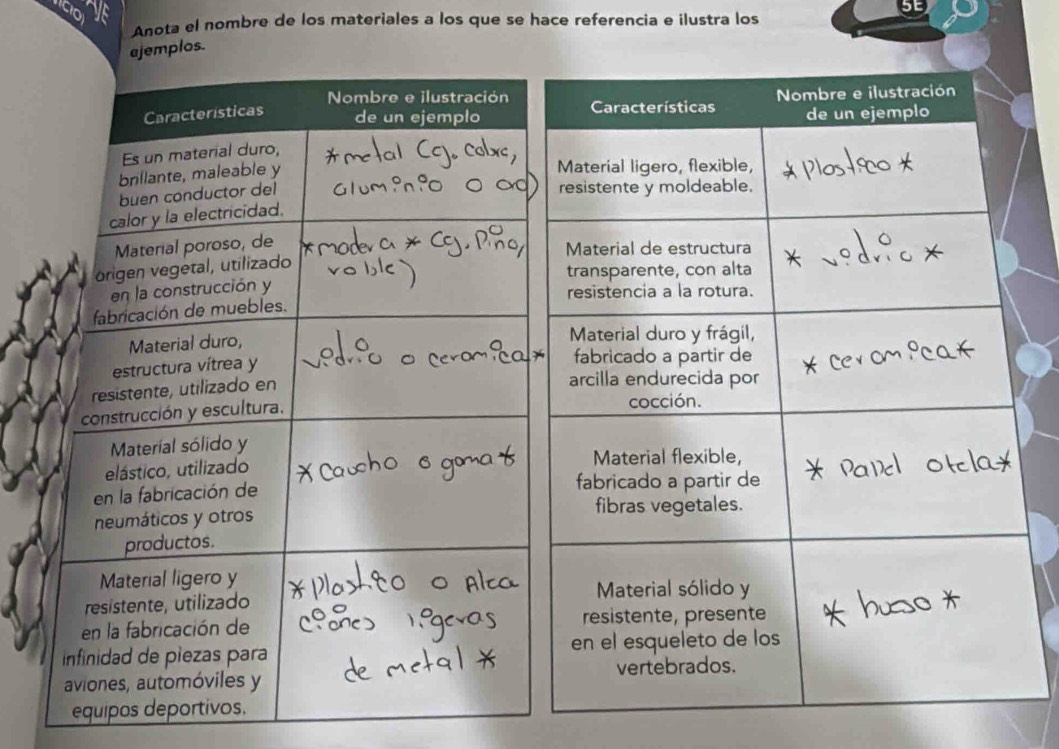 JE
Anota el nombre de los materiales a los que se hace referencia e ilustra los
ejemplos.
Características
Nombre e ilustración
de un ejemplo
Es un material duro,
brillante, maleable y
buen conductor del
calor y la electricidad.
*metal (ej. cobre,
aluminio o oro)
Material poroso, de
origen vegetal, utilizado
en la construcción y
fabricación de muebles.
*madera * (ej. Pino,
roble)
Material duro,
estructura vítrea y
resistente, utilizado en
construcción y escultura.
vidrio o ceramica*
Material sólido y
elástico, utilizado
en la fabricación de
neumáticos y otros
productos.
*caucho o goma*
Material ligero y
resistente, utilizado
en la fabricación de
infinidad de piezas para
aviones, automóviles y
equipos deportivos.
*Plastico o Alea
ciones ligeras
de metal *
Características
Nombre e ilustración
de un ejemplo
Material ligero, flexible,
resistente y moldeable.
*Plastico*
Material de estructura
transparente, con alta
resistencia a la rotura.
* vidrio*
Material duro y frágil,
fabricado a partir de
arcilla endurecida por
cocción.
* ceramica*
Material flexible,
fabricado a partir de
fibras vegetales.
* Papel o tela*
Material sólido y
resistente, presente
en el esqueleto de los
vertebrados.
* hueso*